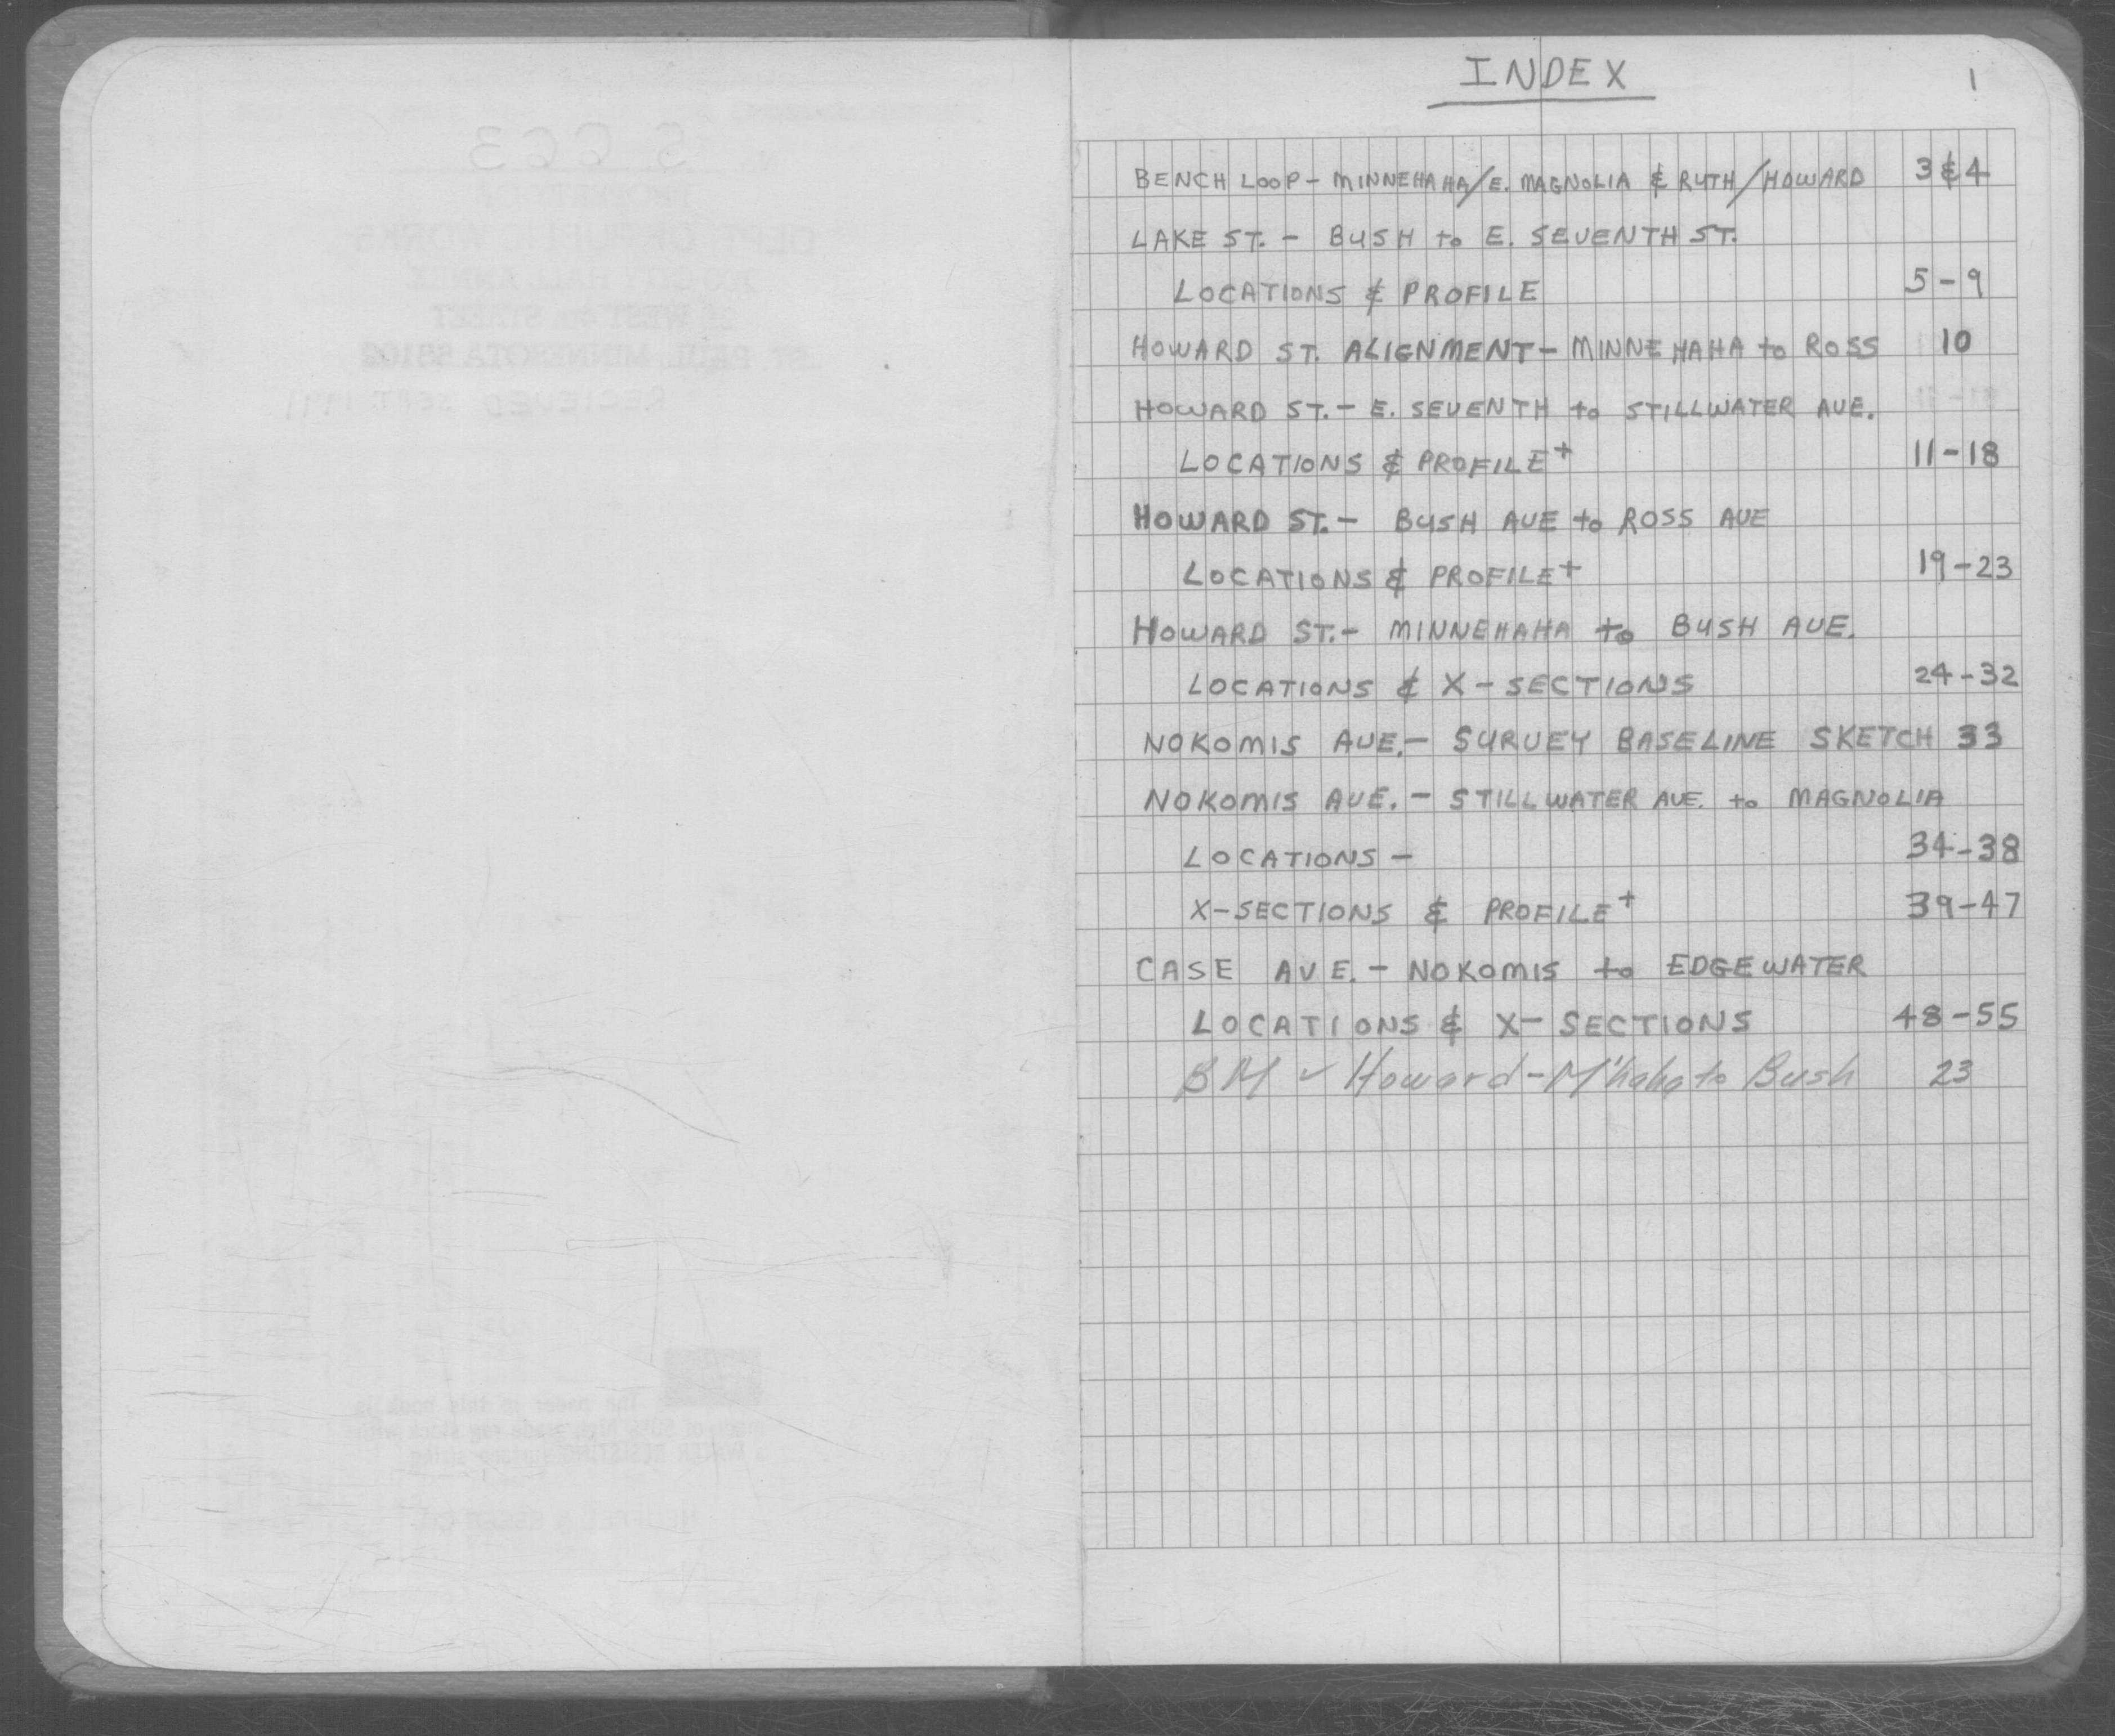 INDEX
1
BENCH LOOP - MINNEHAHA/E. MAGNOLIA & RUTH/HOWARD 3&4
LAKE ST. - BUSH to E. SEVENTH ST.
LOCATIONS & PROFILE 5-9
HOWARD ST. ALIGNMENT - MINNEHAHA to ROSS 10
HOWARD ST. - E. SEVENTH to STILLWATER AVE.
LOCATIONS & PROFILE+ 11-18
HOWARD ST. - BUSH AVE to ROSS AVE
LOCATIONS & PROFILE+ 19-23
HOWARD ST. - MINNEHAHA to BUSH AVE.
LOCATIONS & X-SECTIONS 24-32
NOKOMIS AVE. - SURVEY BASELINE SKETCH 33
NOKOMIS AVE. - STILLWATER AVE. to MAGNOLIA
LOCATIONS - 34-38
X-SECTIONS & PROFILE+ 39-47
CASE AVE. - NOKOMIS to EDGEWATER
LOCATIONS & X-SECTIONS 48-55
BM ✓ Howard - M'haha to Bush 23